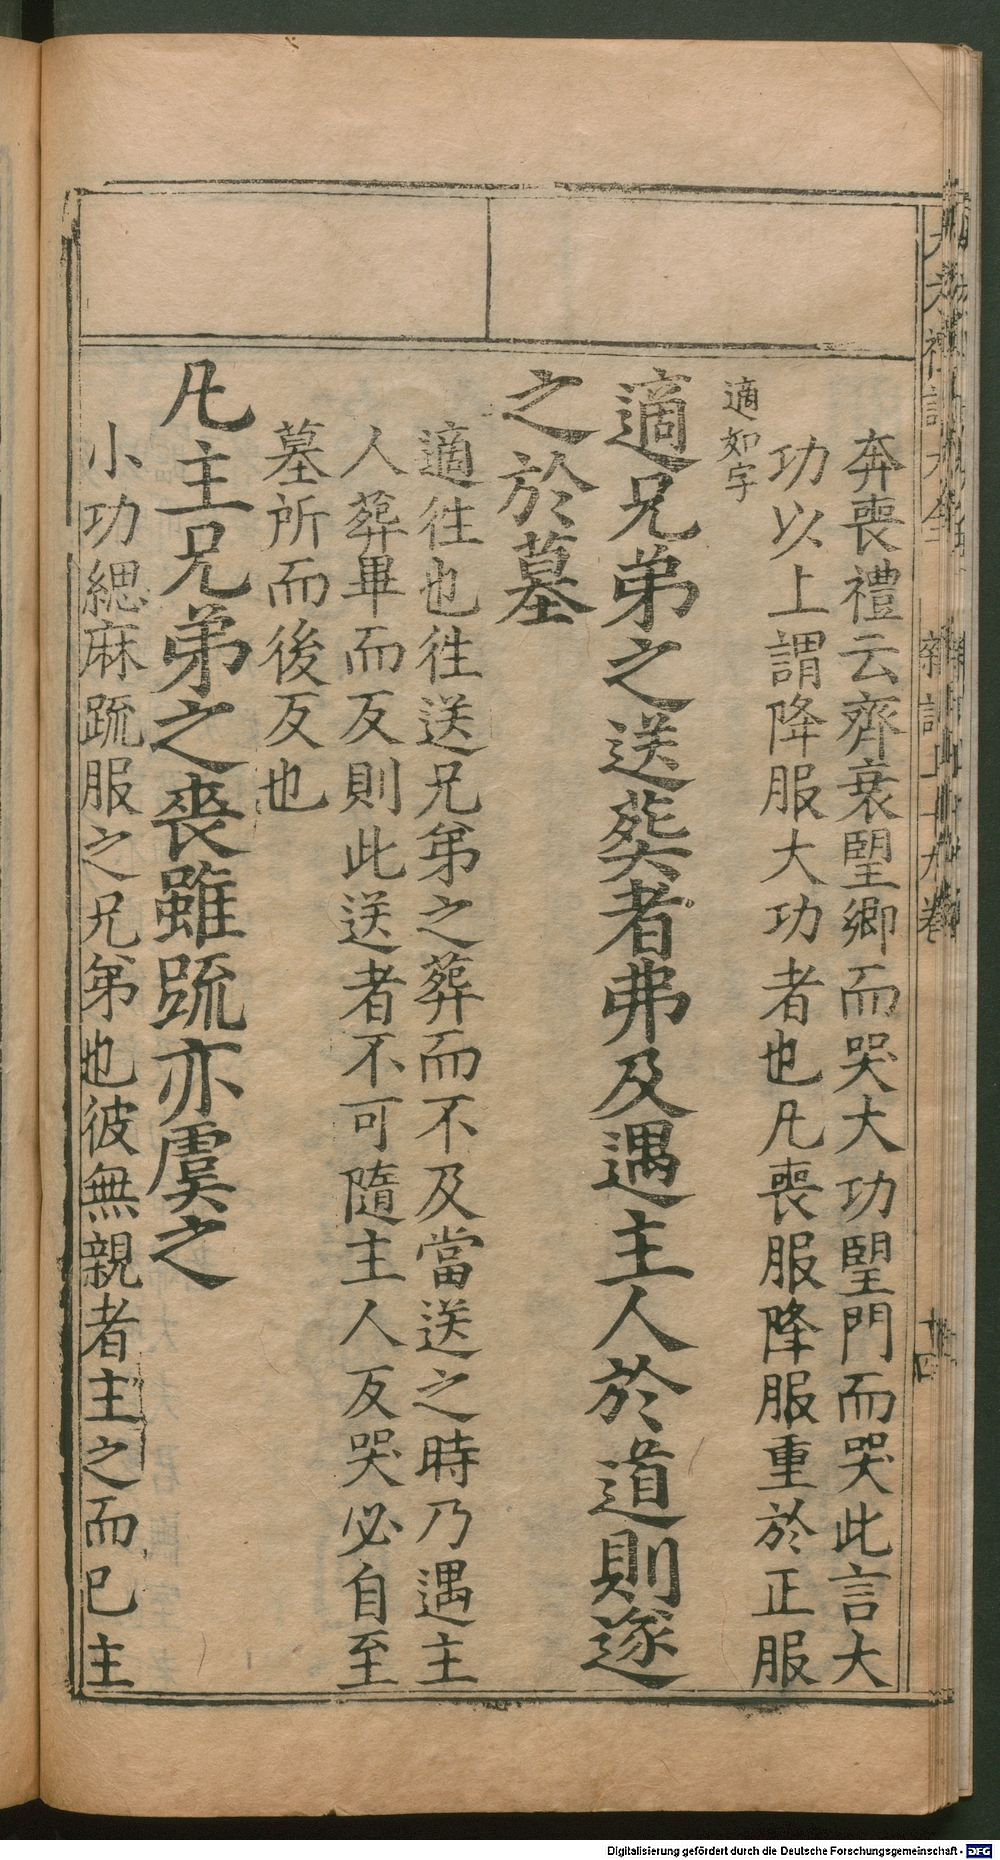 奔喪禮云齊衰朢鄉而哭大功朢門而哭此言大
功以上謂降服大功者也凡喪服降服重於正服
適如字
適兄弟之送葬者弗及遇主人於道則遂
之於墓
適徃也徃送兄弟之葬而不及當送之時乃遇主
人葬畢而反則此送者不可隨主人反哭必自至
墓所而後反也
凡主兄弟之喪雖䟽亦虞之
小功緦麻䟽服之兄弟也彼無親者主之而已主
Digitalisierung gefördert durch die Deutsche Forschungsgemeinschaft - DFG